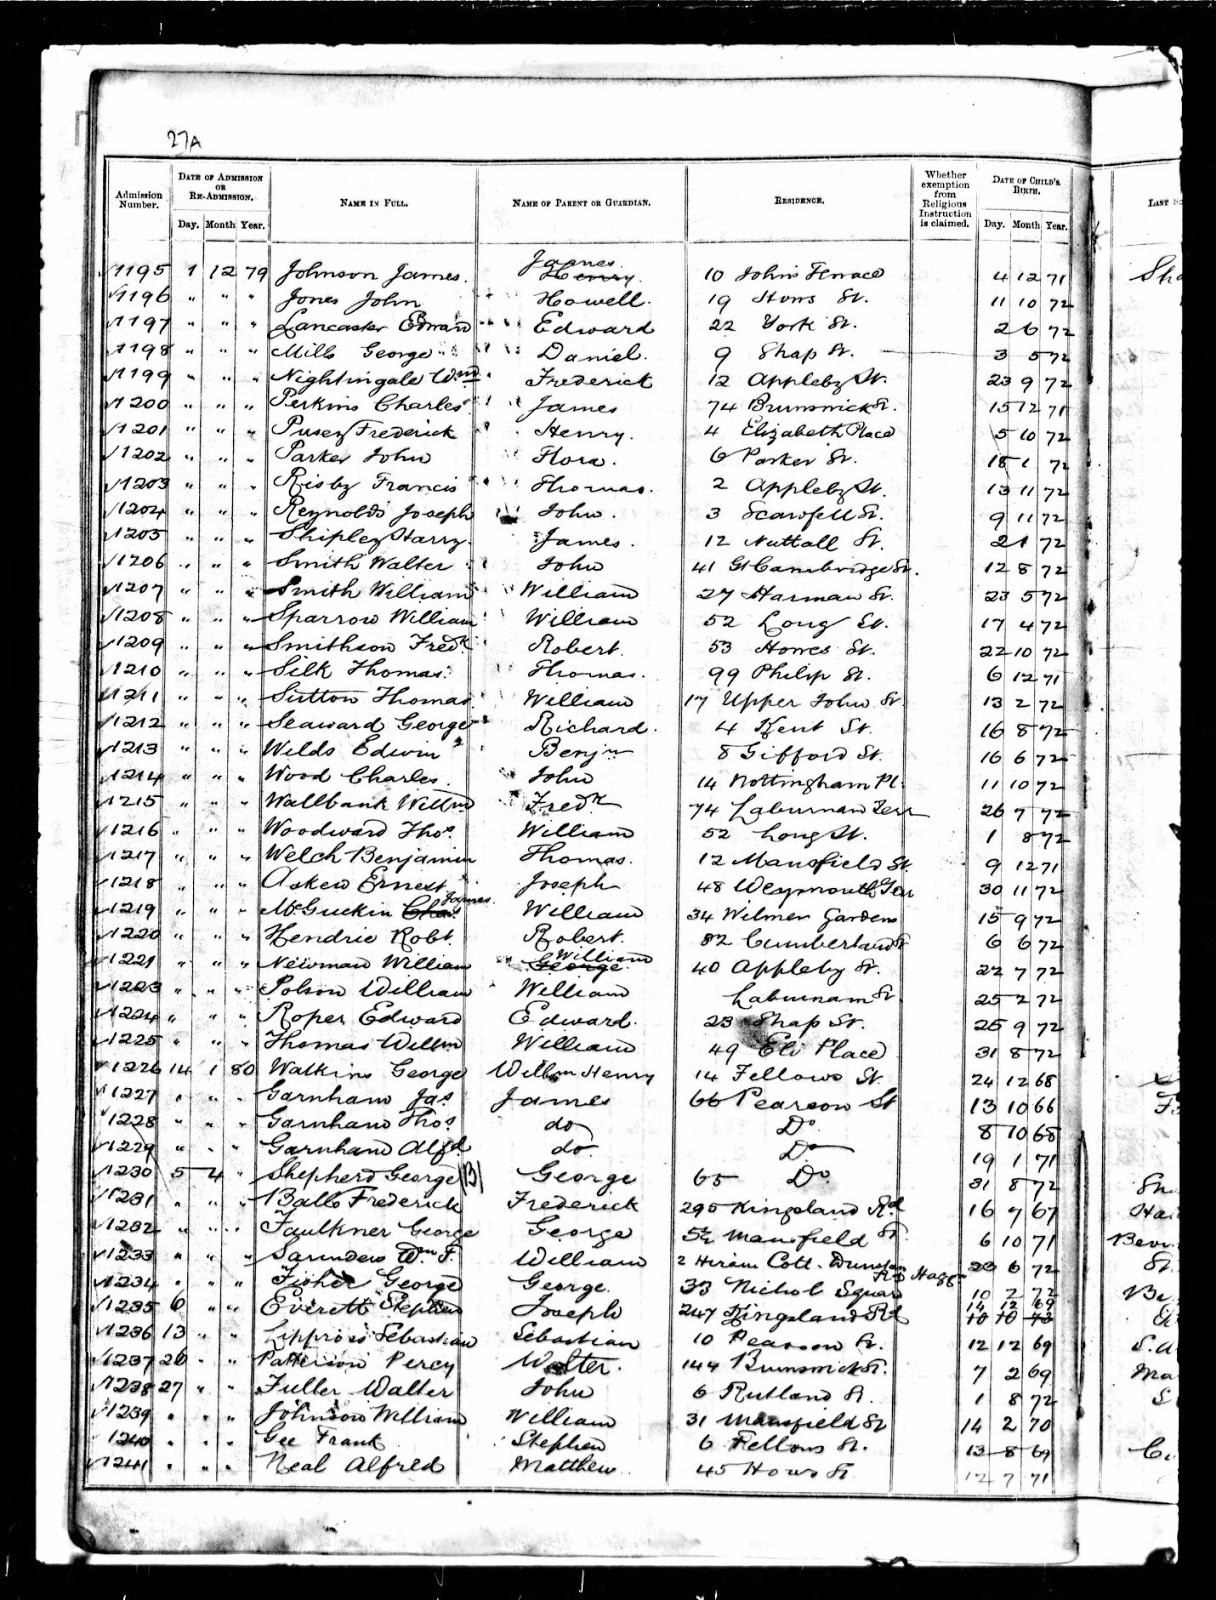 27A
Admission Number. DATE OF ADMISSION OR RE-ADMISSION. NAME IN FULL. NAME OF PARENT OR GUARDIAN. RESIDENCE. Whether exemption from Religious Instruction is claimed. DATE OF CHILD'S BIRTH. LAST
Day. Month Year. Day. Month Year.
1195 1 12 79 Johnson James. James Henry. 10 John's Terrace 4 12 71
1196 " " " Jones John Howell. 19 Hows St. 11 10 72
1197 " " " Lancaster Edward Edward 22 York St. 2 6 72
1198 " " " Mills George Daniel. 9 Shap St. 3 5 72
1199 " " " Nightingale Wm Frederick 12 Appleby St. 23 9 72
1200 " " " Perkins Charles James 74 Brunswick St. 15 12 71
1201 " " " Pusey Frederick Henry. 4 Elizabeth Place 5 10 72
1202 " " " Parker John Flora. 6 Parker St. 18 1 72
1203 " " " Risby Francis Thomas. 2 Appleby St. 13 11 72
1204 " " " Reynolds Joseph John. 3 Scawfell St. 9 11 72
1205 " " " Shipley Harry. James. 12 Nuttall St. 2 1 72
1206 " " " Smith Walter John 41 Gt Cambridge St. 12 8 72
1207 " " " Smith William William 27 Harman St. 23 5 72
1208 " " " Sparrow William William 52 Long St. 17 4 72
1209 " " " Smithson Fredk Robert. 53 Howes St. 22 10 72
1210 " " " Silk Thomas. Thomas. 99 Philip St. 6 12 71
1211 " " " Sutton Thomas William 17 Upper John St. 13 2 72
1212 " " " Seaward George Richard. 4 Kent St. 16 8 72
1213 " " " Wilds Edwin Benjn 8 Gifford St. 16 6 72
1214 " " " Wood Charles. John 14 Nottingham Pl. 11 10 72
1215 " " " Wallbank Willm Fredk 74 Laburnam Terr 26 7 72
1216 " " " Woodward Thos. William 52 Long St. 1 8 72
1217 " " " Welch Benjamin Thomas. 12 Mansfield St. 9 12 71
1218 " " " Askew Ernest Joseph 48 Weymouth Terr 30 11 72
1219 " " " McGuckin Chas James. William 34 Wilmer Gardens 15 9 72
1220 " " " Hendrie Robt. Robert. 82 Cumberland St 6 6 72
1221 " " " Newman William George William 40 Appleby St. 22 7 72
1223 " " " Polson William William Laburnam St. 25 2 72
1224 " " " Roper Edward Edward. 23 Shap St. 25 9 72
1225 " " " Thomas Willm William 49 Eli Place 31 8 72
1226 14 1 80 Watkins George Willm Henry 14 Fellows St. 24 12 68
1227 " " " Garnham Jas James 66 Pearson St 13 10 66
1228 " " " Garnham Thos do Do 8 10 68
1229 " " " Garnham Alfd do Do 19 1 71
1230 5 4 " Shepherd George (B) George 65 Do. 31 8 72
1231 " " " Balls Frederick Frederick 295 Kingsland Rd 16 7 67
1232 " " " Faulkner George George 52 Mansfield St. 6 10 71
1233 " " " Saunders Wm F. William 2 Hiram Cott. Dunston Rd Hagg 23 6 72
1234 " " " Fisher George George. 33 Nichol Square 10 2 72
1235 6 " " Everett Stephen Joseph 247 Kingsland Rd 14 12 69
1236 13 " " Sebastian Sebastian 10 Pearson St. 12 12 69
1237 26 " " Patterson Percy Walter. 144 Brunswick St. 7 2 69
1238 27 " " Fuller Walter John 6 Rutland St. 1 8 72
1239 " " " Johnson William William 31 Mansfield St 14 2 70
1240 " " " Gee Frank Stephen 6 Fellows St. 13 8 69
1241 " " " Neal Alfred Matthew. 45 Hows St 12 7 71